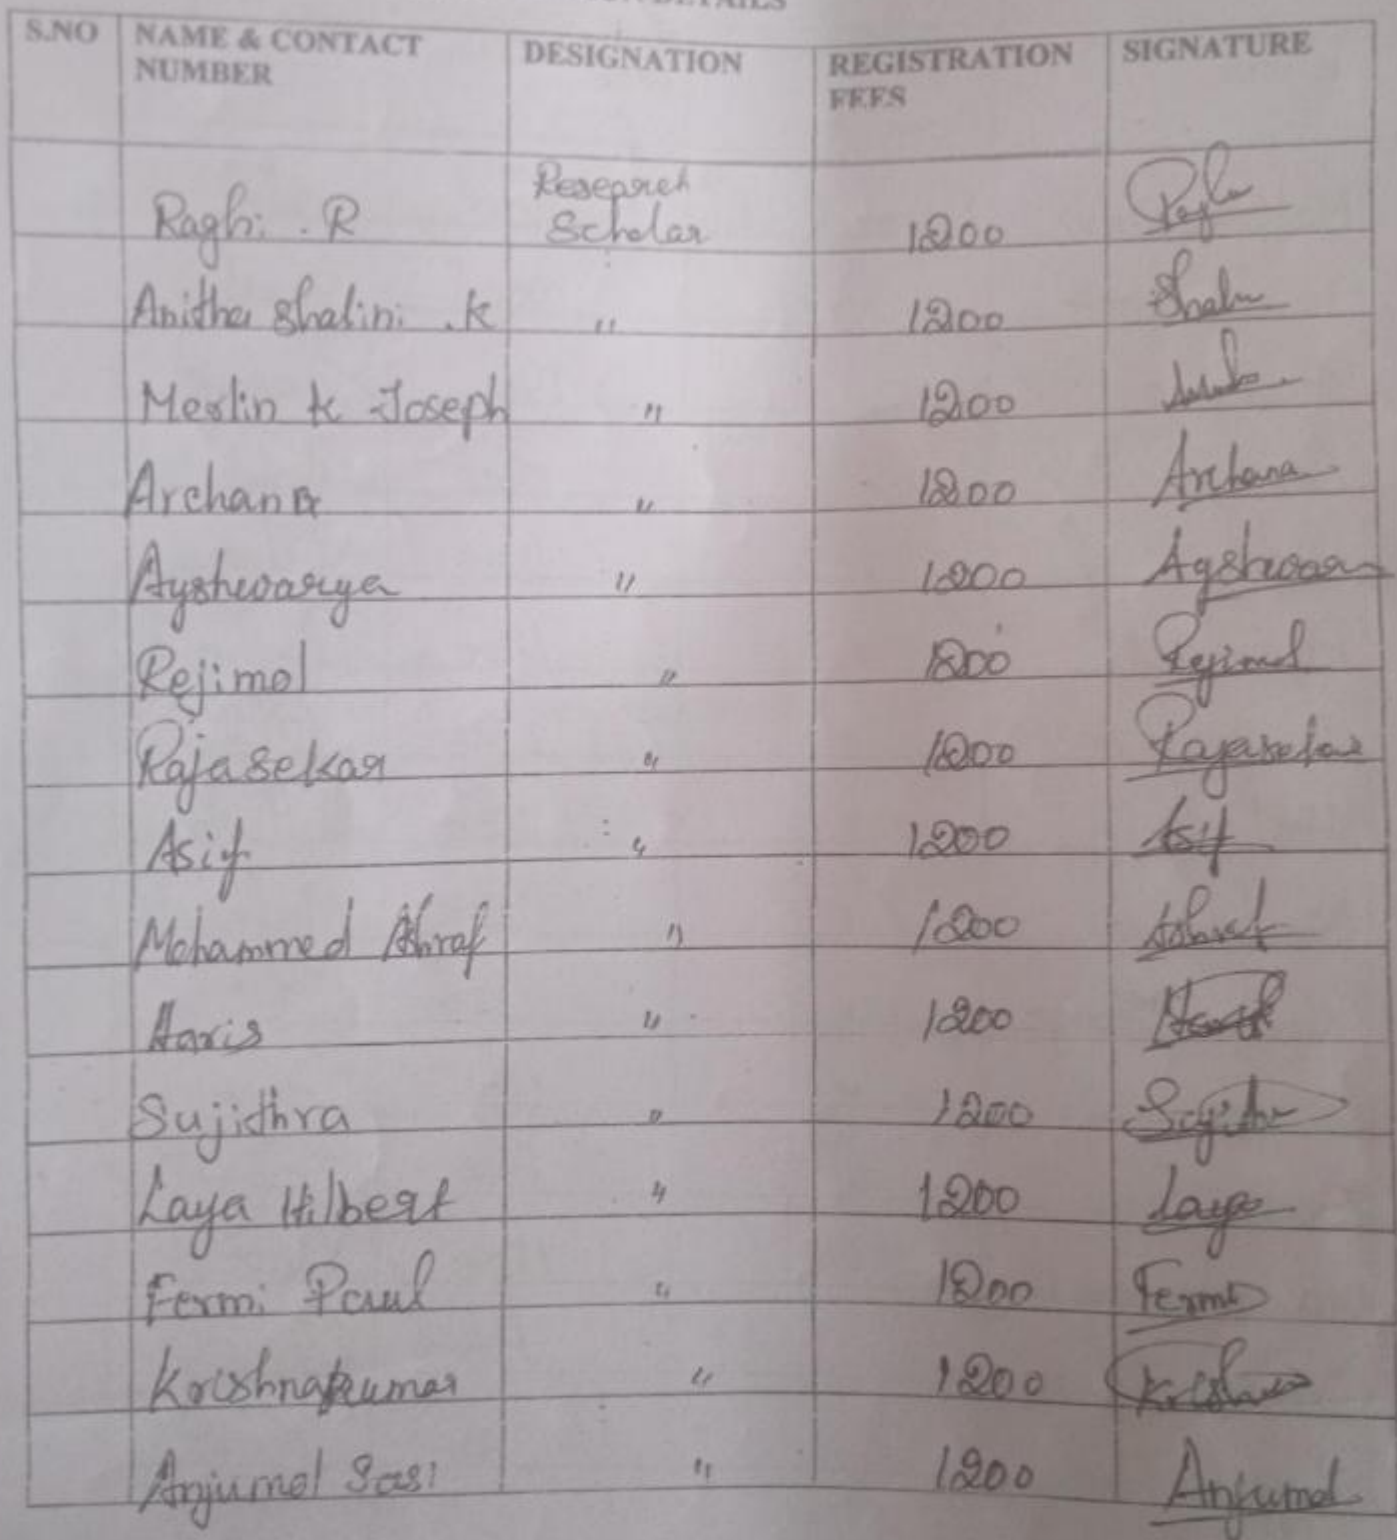 DETAILS
S.NO NAME & CONTACT NUMBER DESIGNATION REGISTRATION FEES SIGNATURE
Raghi . R Research Scholar 1200
Anitha Shalini . K " 1200 Shalu
Merlin K Joseph " 1200
Archana " 1200 Archana
Ayshwarya " 1200 Ayshwarya
Rejimol " 1200 Rejimol
Rajasekar " 1200 Rajasekar
Asif " 1200 Asif
Mohammed Ashraf " 1200 Ashraf
Haris " 1200
Sujidhra " 1200
Laya Hilbert " 1200 Laya
Fermi Paul " 1200 Fermi
Krishnakumar " 1200
Anjumol Sasi " 1200 Anjumol